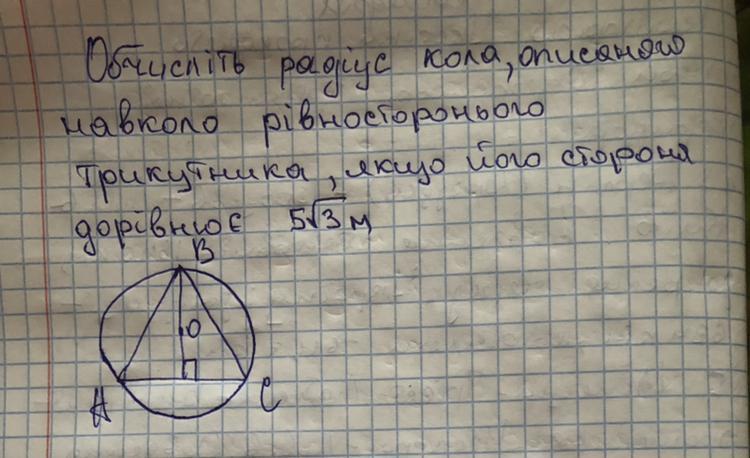 Обчисліть радіус кола, описаного
навколо рівностороннього
трикутника, якщо його сторона
дорівнює 5√3 м
B
O
A
C